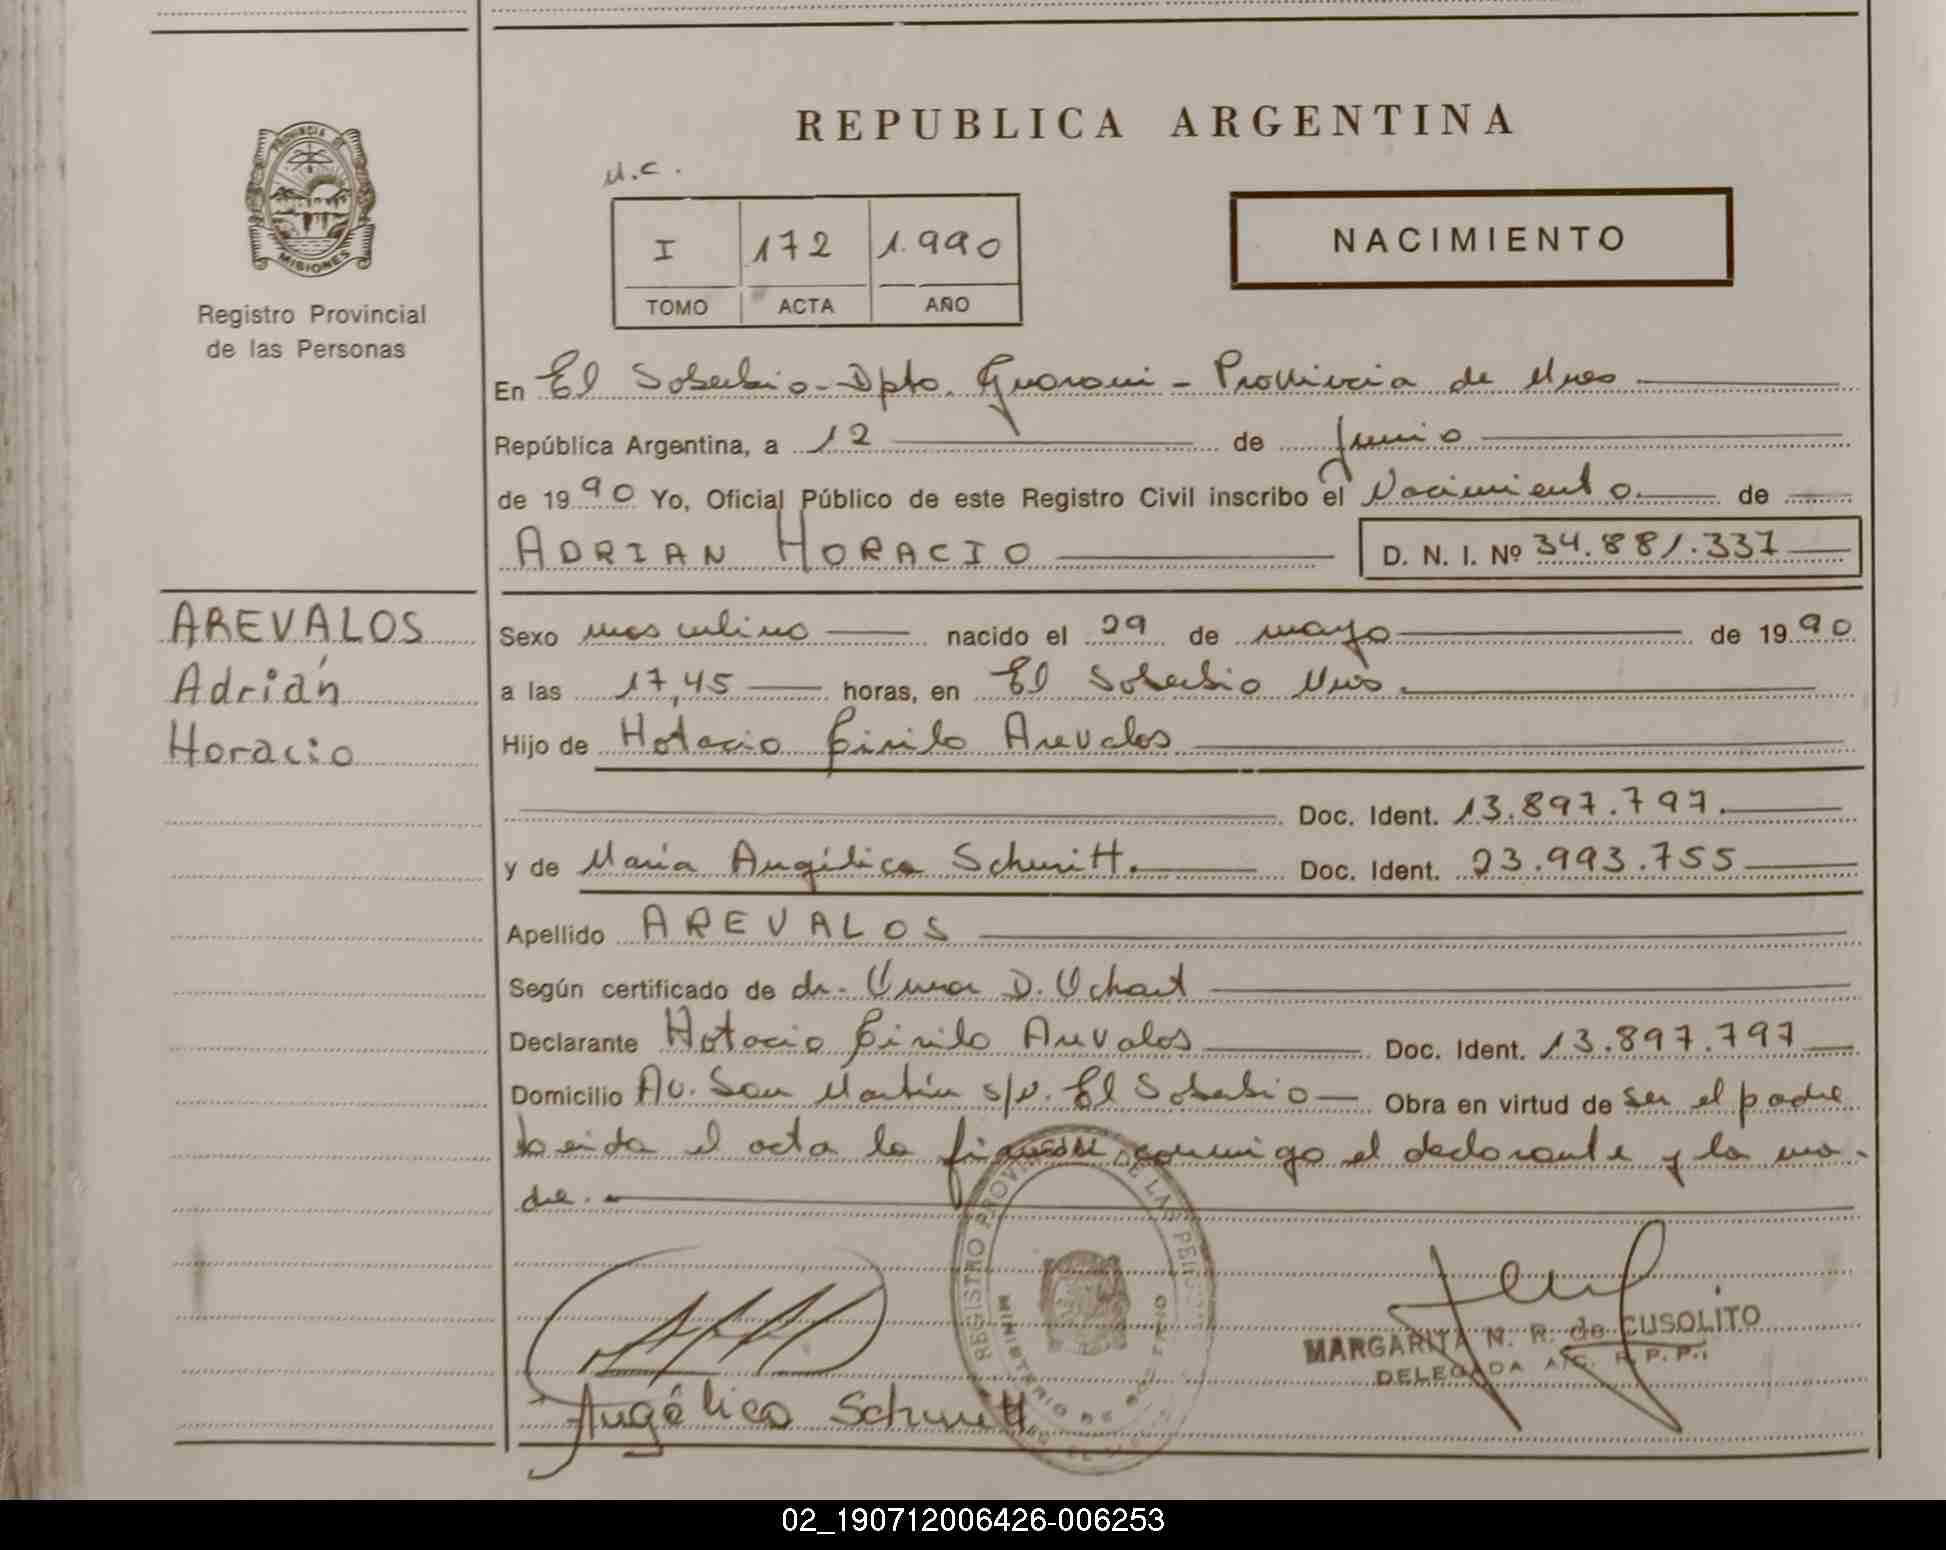 REPUBLICA ARGENTINA
PROVINCIA DE
MISIONES
Registro Provincial
de las Personas
M.C.
I 172 1.990
TOMO ACTA AÑO
NACIMIENTO
En El Soberbio - Dpto. Guarani - Provincia de Mnes
República Argentina, a 12 de Junio
de 1990 Yo, Oficial Público de este Registro Civil inscribo el Nacimiento de
ADRIAN HORACIO D. N. I. Nº 34.881.337
AREVALOS
Adrián
Horacio
Sexo masculino nacido el 29 de mayo de 1990
a las 17,45 horas, en El Soberbio Mnes.
Hijo de Horacio Cirilo Arevalos
Doc. Ident. 13.897.797.
y de María Angélica Schmitt. Doc. Ident. 23.993.755
Apellido AREVALOS
Según certificado de dr. D.
Declarante Horacio Cirilo Arevalos Doc. Ident. 13.897.797
Domicilio Av. San Martín s/n. El Soberbio Obra en virtud de ser el padre
Leida el acta la conmigo el declarante y la ma-
dre.
REGISTRO PROVINCIAL DE LAS PERSONAS
MINISTERIO DE
Angélica Schmitt
MARGARITA N. R. de CUSOLITO
DELEGADA
02_190712006426-006253